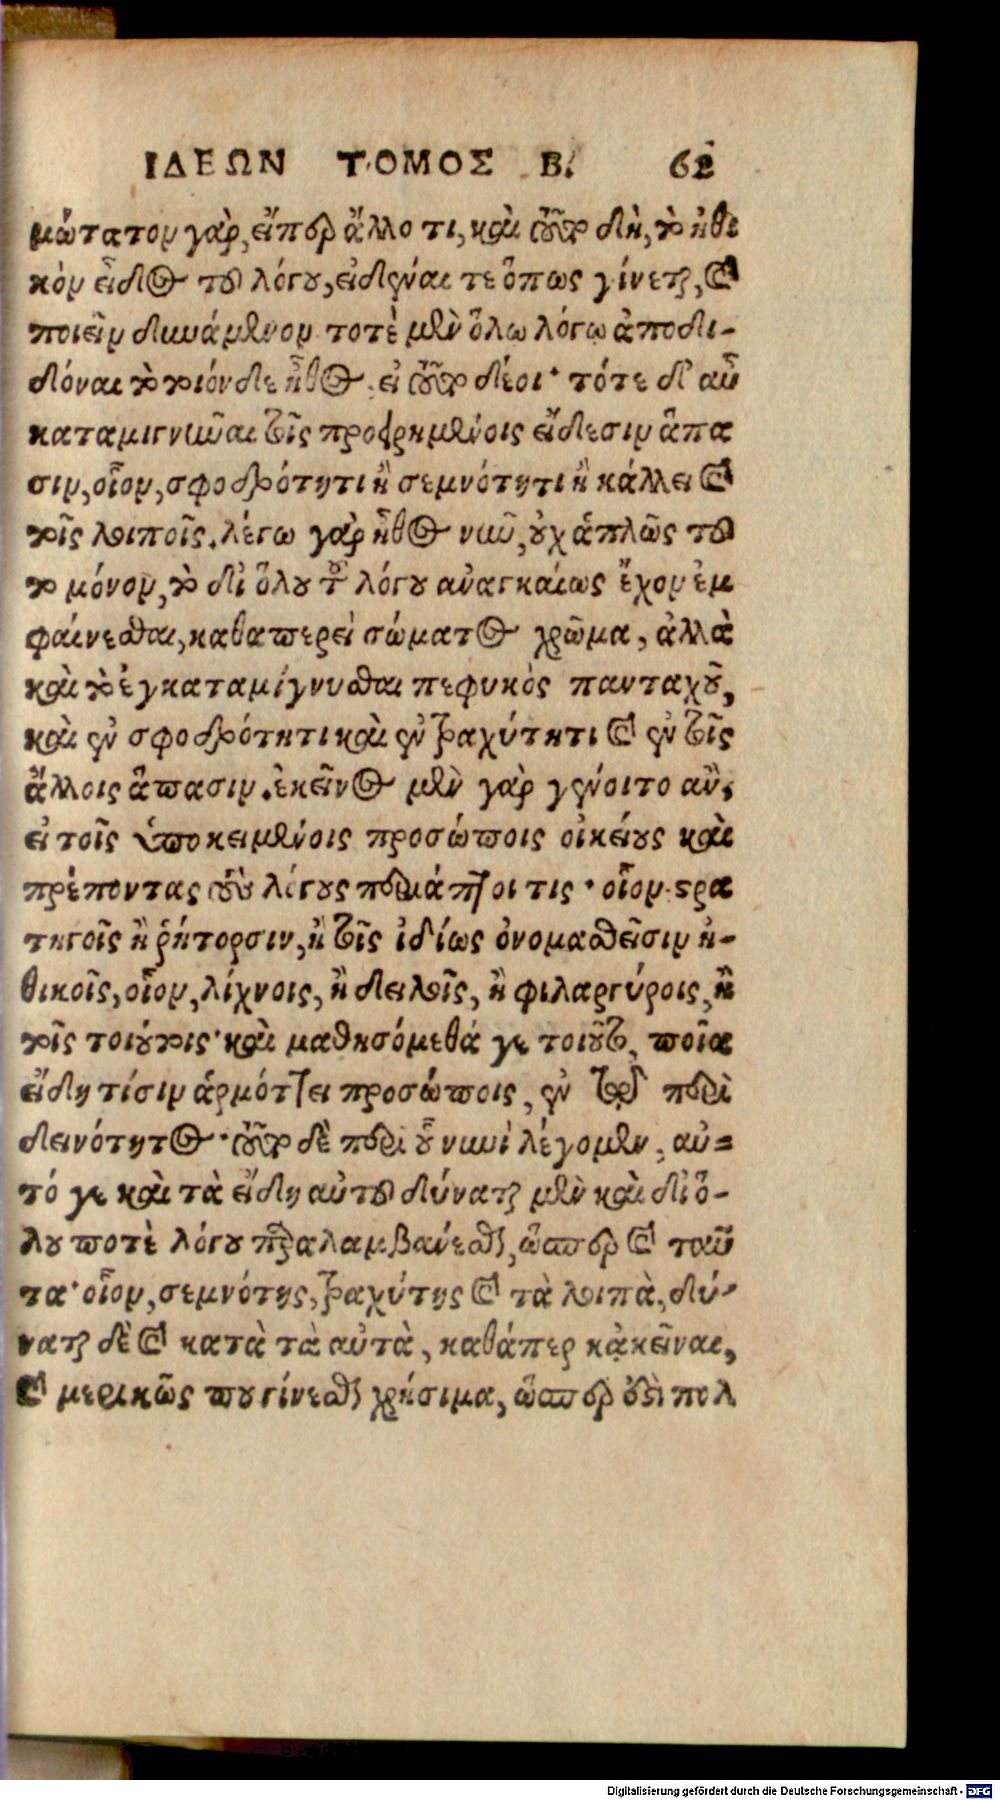 ΙΔΕΩΝ ΤΟΜΟΣ Β. 62
μώτατον γὰρ, εἴπερ ἄλλο τι, καὶ τοῦτο δὴ, τὸ ἠθι
κὸν εἶδος τοῦ λόγου, εἰδέναι τε ὅπως γίνεται, καὶ
ποιεῖν δυνάμενον τοτὲ μὲν ὅλῳ λόγῳ ἀποδι-
δόναι τὸ τοιόνδε ἦθος, εἰ τοῦτο δέοι· τότε δ' αὖ
καταμιγνῦναι τοῖς προειρημένοις εἴδεσιν ἅπα
σιν, οἷον, σφοδρότητι ἢ σεμνότητι ἢ κάλλει καὶ
τοῖς λοιποῖς. λέγω γὰρ ἦθος νῦν, οὐχ ἁπλῶς τοῦ
το μόνον, τὸ δι' ὅλου τοῦ λόγου ἀναγκαίως ἔχον ἐμ
φαίνεσθαι, καθαπερεὶ σώματος χρῶμα, ἀλλὰ
καὶ τὸ ἐγκαταμίγνυσθαι πεφυκὸς πανταχοῦ,
καὶ ἐν σφοδρότητι καὶ ἐν τραχύτητι καὶ ἐν τοῖς
ἄλλοις ἅπασιν. ἐκεῖνος μὲν γὰρ γένοιτο ἂν,
εἰ τοῖς ὑποκειμένοις προσώποις οἰκείους καὶ
πρέποντας τοὺς λόγους περιάπτοι τις· οἷον στρα
τηγοῖς ἢ ῥήτορσιν, ἢ τοῖς ἰδίως ὀνομασθεῖσιν ἠ-
θικοῖς, οἷον, λίχνοις, ἢ δειλοῖς, ἢ φιλαργύροις, ἢ
τοῖς τοιούτοις· καὶ μαθησόμεθά γε τοιοῦτο, ποῖα
εἴδη τίσιν ἁρμόττει προσώποις, ἐν τῷ περὶ
δεινότητος· τοῦτο δὲ περὶ οὗ νυνὶ λέγομεν, αὐ-
τό γε καὶ τὰ εἴδη αὐτοῦ δύναται μὲν καὶ δι' ὅ-
λου ποτὲ λόγου παραλαμβάνεσθαι, ὥσπερ καὶ ταῦ
τα· οἷον, σεμνότης, τραχύτης καὶ τὰ λοιπὰ, δύ-
ναται δὲ καὶ κατὰ τὰ αὐτὰ, καθάπερ κἀκεῖναι,
καὶ μερικῶς που γίνεσθαι χρήσιμα, ὥσπερ ἐστὶ πολ
Digitalisierung gefördert durch die Deutsche Forschungsgemeinschaft - DFG